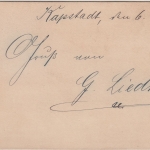 Kapstadt, den 6
Gruß von
G Lieds